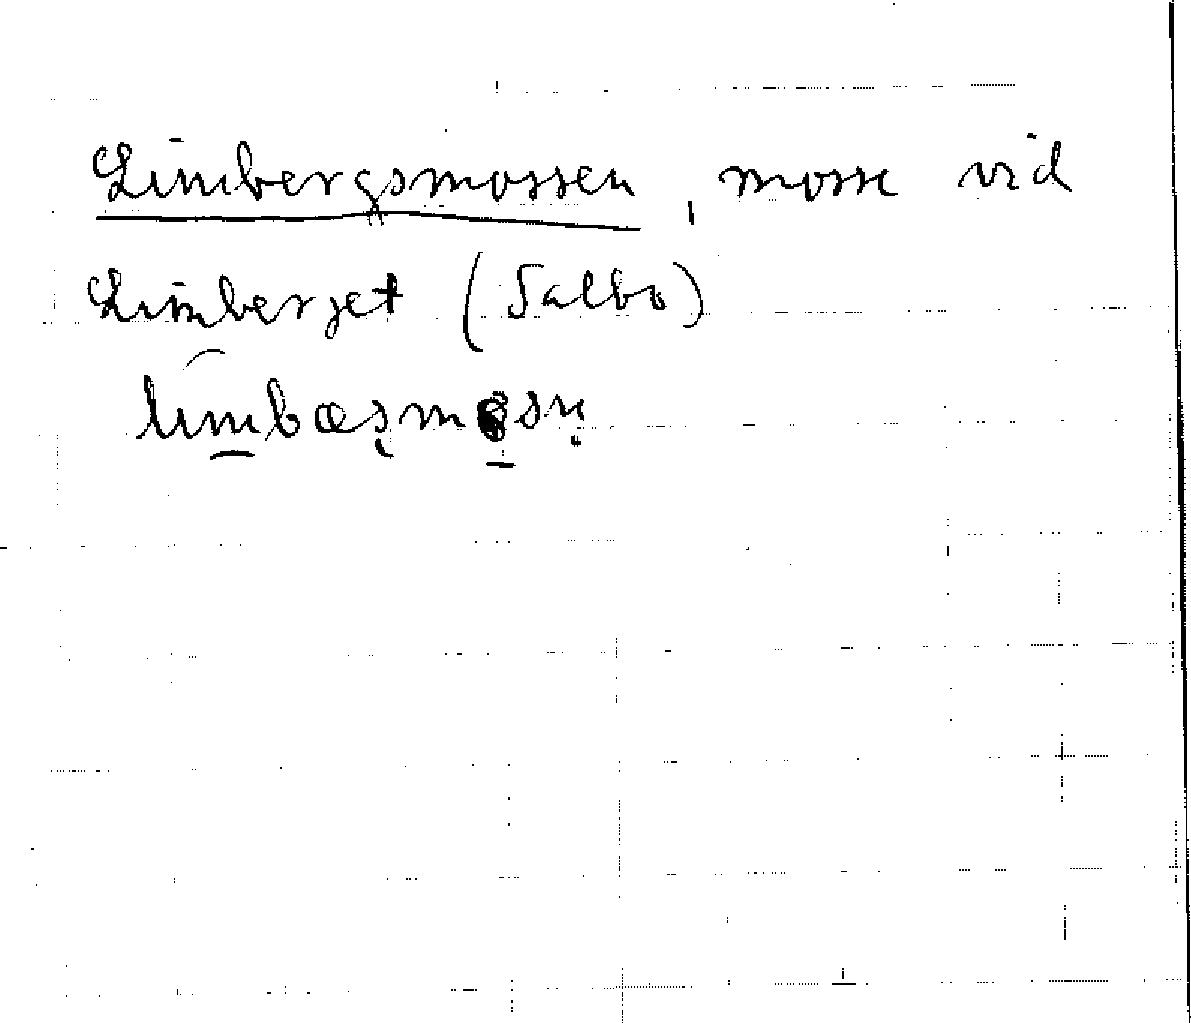 Limbergsmossen, mosse vid
Limberget (Salbo)